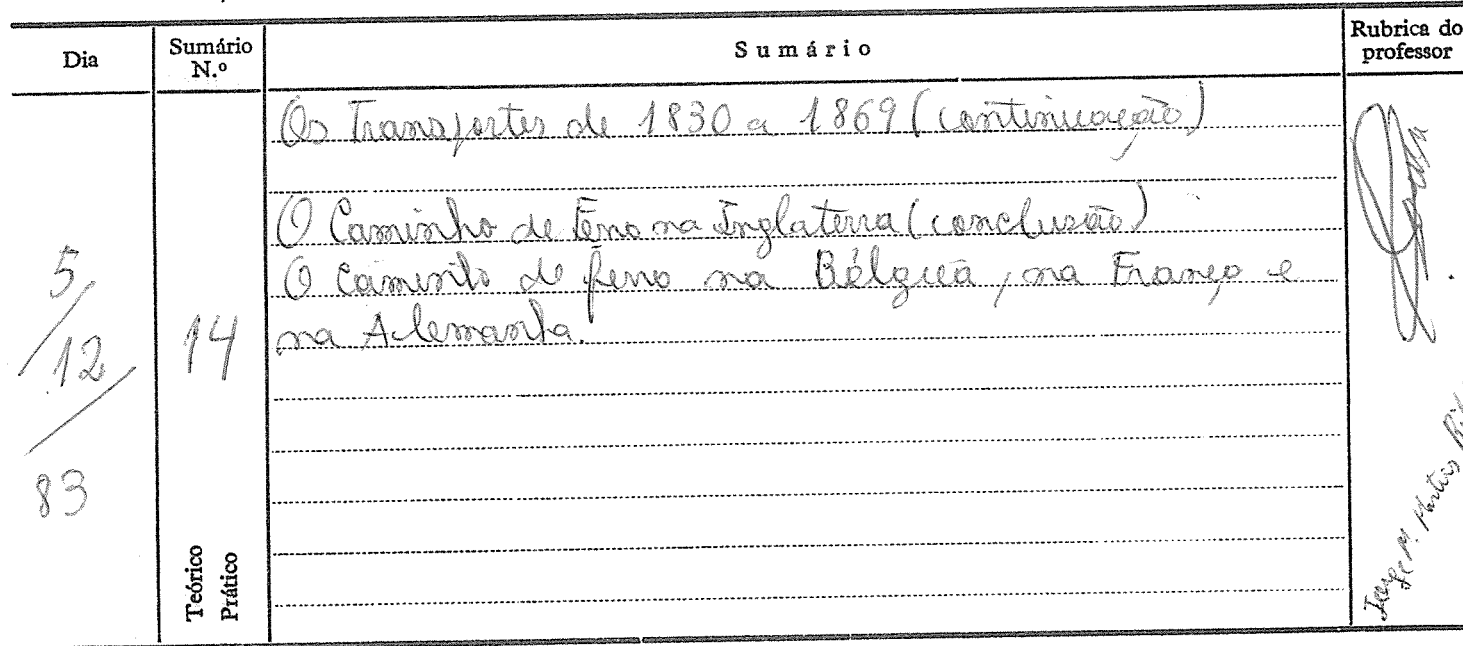 Dia
Sumário N.º
Sumário
Rubrica do professor
5/12/83
14
Os Transportes de 1830 a 1869 (continuação)
O Caminho de Ferro na Inglaterra (conclusão)
O caminho de ferro na Bélgica, na França e
na Alemanha.
Teórico
Prático
Jorge M. Martins